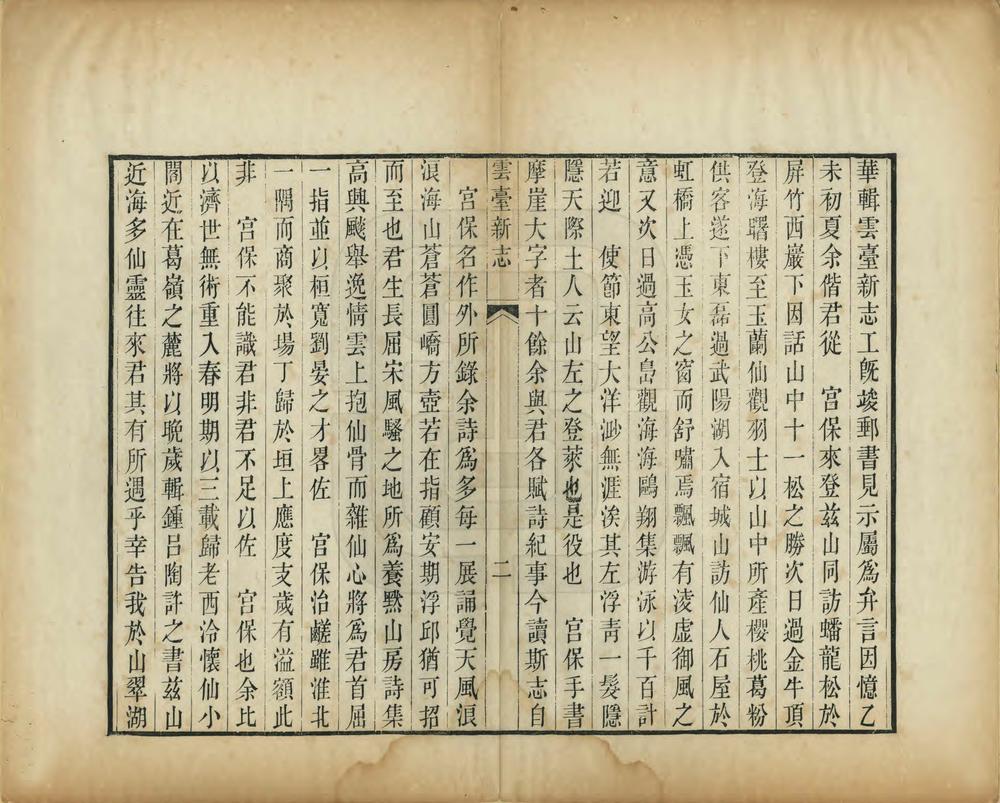 華輯雲臺新志工旣竣郵書見示屬爲弁言因憶乙
未初夏余偕君從　宮保來登茲山同訪蟠龍松於
屏竹西巖下因話山中十一松之勝次日過金牛頂
登海曙樓至玉蘭仙觀羽士以山中所產櫻桃葛粉
供客遂下東磊過武陽湖入宿城山訪仙人石屋於
虹橋上憑玉女之窗而舒嘯焉飄飄有淩虛御風之
意又次日過高公島觀海海鷗翔集游泳以千百計
若迎　使節東望大洋渺無涯涘其左浮靑一髮隱
隱天際土人云山左之登萊也是役也　宮保手書
摩崖大字者十餘余與君各賦詩紀事今讀斯志自
雲臺新志　二
宮保名作外所錄余詩爲多每一展誦覺天風浪
浪海山蒼蒼圓嶠方壺若在指顧安期浮邱猶可招
而至也君生長屈宋風騷之地所爲養黙山房詩集
高興颷舉逸情雲上抱仙骨而雜仙心將爲君首屈
一指並以桓寬劉晏之才畧佐　宮保治鹺雖淮北
一隅而商聚於場丁歸於垣上應度支歲有溢額此
非　宮保不能識君非君不足以佐　宮保也余比
以濟世無術重入春明期以三載歸老西泠懷仙小
閣近在葛嶺之麓將以晩歲輯鍾呂陶許之書茲山
近海多仙靈往來君其有所遇乎幸告我於山翠湖